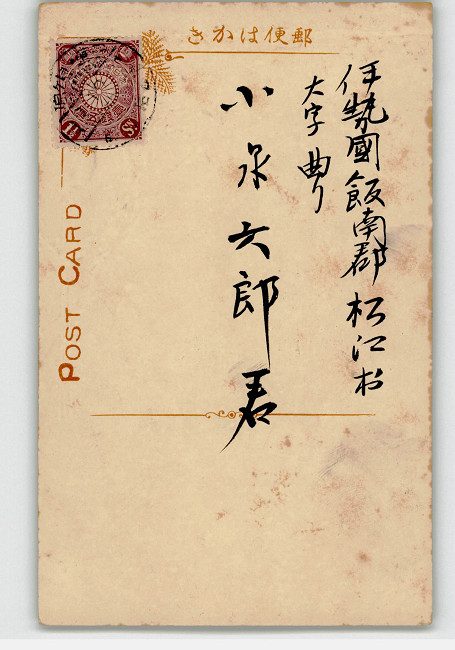 郵便はかき
伊勢國飯南郡松江村
大字曲り
小泉六郎君
POST CARD